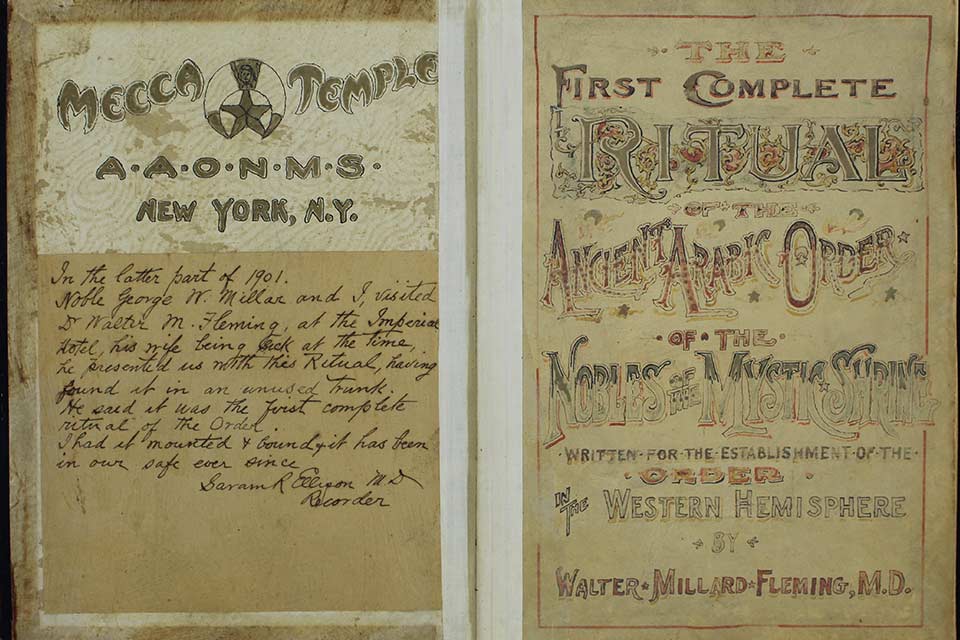 MECCA TEMPLE
A·A·O·N·M·S·
NEW YORK, N.Y.
In the latter part of 1901.
Noble George W. Millar and I, visited
Dr Walter M. Fleming, at the Imperial
Hotel, his wife being sick at the time,
he presented us with this Ritual, having
found it in an unused trunk.
He said it was the first complete
ritual of the Order.
I had it mounted & bound & it has been
in our safe ever since
Saram R Ellison MD
Recorder
THE
FIRST COMPLETE
RITUAL
OF THE
ANCIENT ARABIC ORDER
OF THE
NOBLES OF THE MYSTIC SHRINE
WRITTEN FOR THE ESTABLISHMENT OF THE
ORDER
IN THE WESTERN HEMISPHERE
BY
WALTER MILLARD FLEMING, M.D.